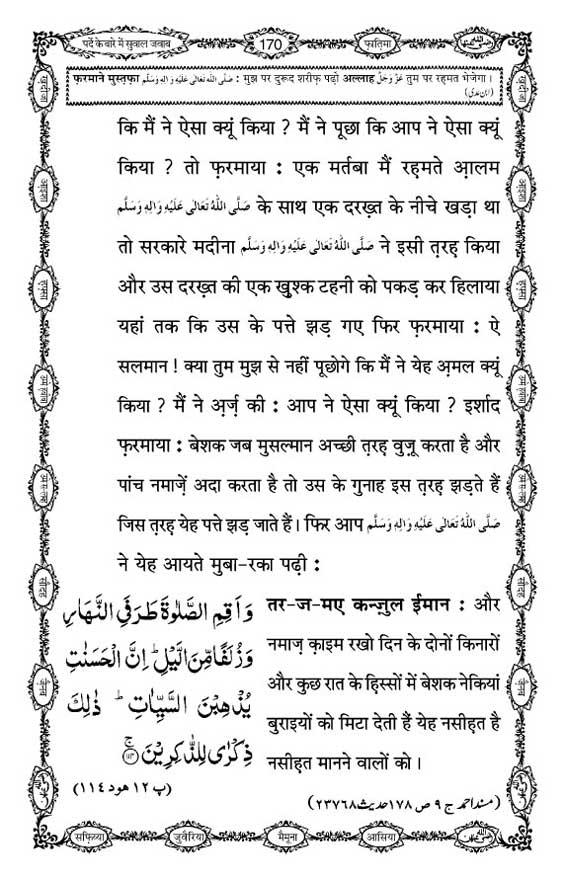 पर्दे के बारे में सुवाल जवाब
170
फ़ातिमा
फ़रमाने मुस्तफ़ा صَلَّى اللهُ تَعَالٰى عَلَيْهِ وَاٰلِهٖ وَسَلَّم : मुझ पर दुरूद शरीफ़ पढ़ो अल्लाह عَزَّ وَجَلَّ तुम पर रहमत भेजेगा।
(ابن عدی)
कि मैं ने ऐसा क्यूं किया ? मैं ने पूछा कि आप ने ऐसा क्यूं
किया ? तो फ़रमाया : एक मर्तबा मैं रह़मते आ़लम
صَلَّى اللهُ تَعَالٰى عَلَيْهِ وَاٰلِهٖ وَسَلَّم के साथ एक दरख़्त के नीचे खड़ा था
तो सरकारे मदीना صَلَّى اللهُ تَعَالٰى عَلَيْهِ وَاٰلِهٖ وَسَلَّم ने इसी त़रह़ किया
और उस दरख़्त की एक खुश्क टहनी को पकड़ कर हिलाया
यहां तक कि उस के पत्ते झड़ गए फिर फ़रमाया : ऐ
सलमान ! क्या तुम मुझ से नहीं पूछोगे कि मैं ने येह अ़मल क्यूं
किया ? मैं ने अ़र्ज़ की : आप ने ऐसा क्यूं किया ? इर्शाद
फ़रमाया : बेशक जब मुसल्मान अच्छी त़रह़ वुज़ू करता है और
पांच नमाज़ें अदा करता है तो उस के गुनाह इस त़रह़ झड़ते हैं
जिस त़रह़ येह पत्ते झड़ जाते हैं। फिर आप صَلَّى اللهُ تَعَالٰى عَلَيْهِ وَاٰلِهٖ وَسَلَّم
ने येह आयते मुबा-रका पढ़ी :
وَاَقِمِ الصَّلٰوةَ طَرَفَيِ النَّهَارِ
وَزُلَفًا مِّنَ الَّيْلِ ؕ اِنَّ الْحَسَنٰتِ
يُذْهِبْنَ السَّيِّاٰتِ ؕ ذٰلِكَ
ذِكْرٰى لِلذّٰكِرِيْنَ
(پ ١٢ هود ١١٤)
तर-ज-मए कन्ज़ुल ईमान : और
नमाज़ क़ाइम रखो दिन के दोनों किनारों
और कुछ रात के हिस्सों में बेशक नेकियां
बुराइयों को मिटा देती हैं येह नसीह़त है
नसीह़त मानने वालों को।
(مسند احمد ج ۹ ص ۱۷۸ حدیث ۲۳۷۶۸)
सफ़िय्या
जुवैरिया
मैमूना
आसिया